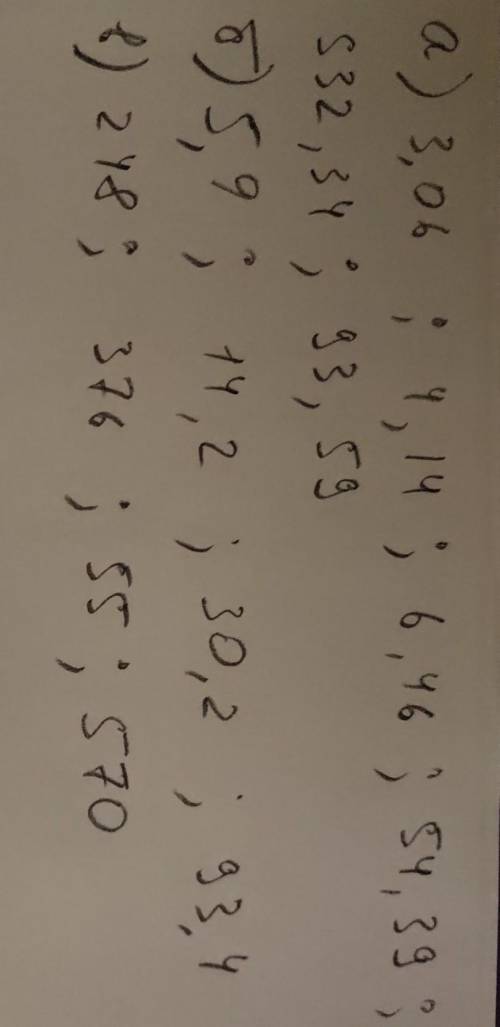 а) 3,06 ; 4,14 ; 6,46 ; 54,39 ;
532,34 ; 93,59
б) 5,9 ; 14,2 ; 30,2 ; 93,4
в) 248 ; 376 ; 55 ; 570